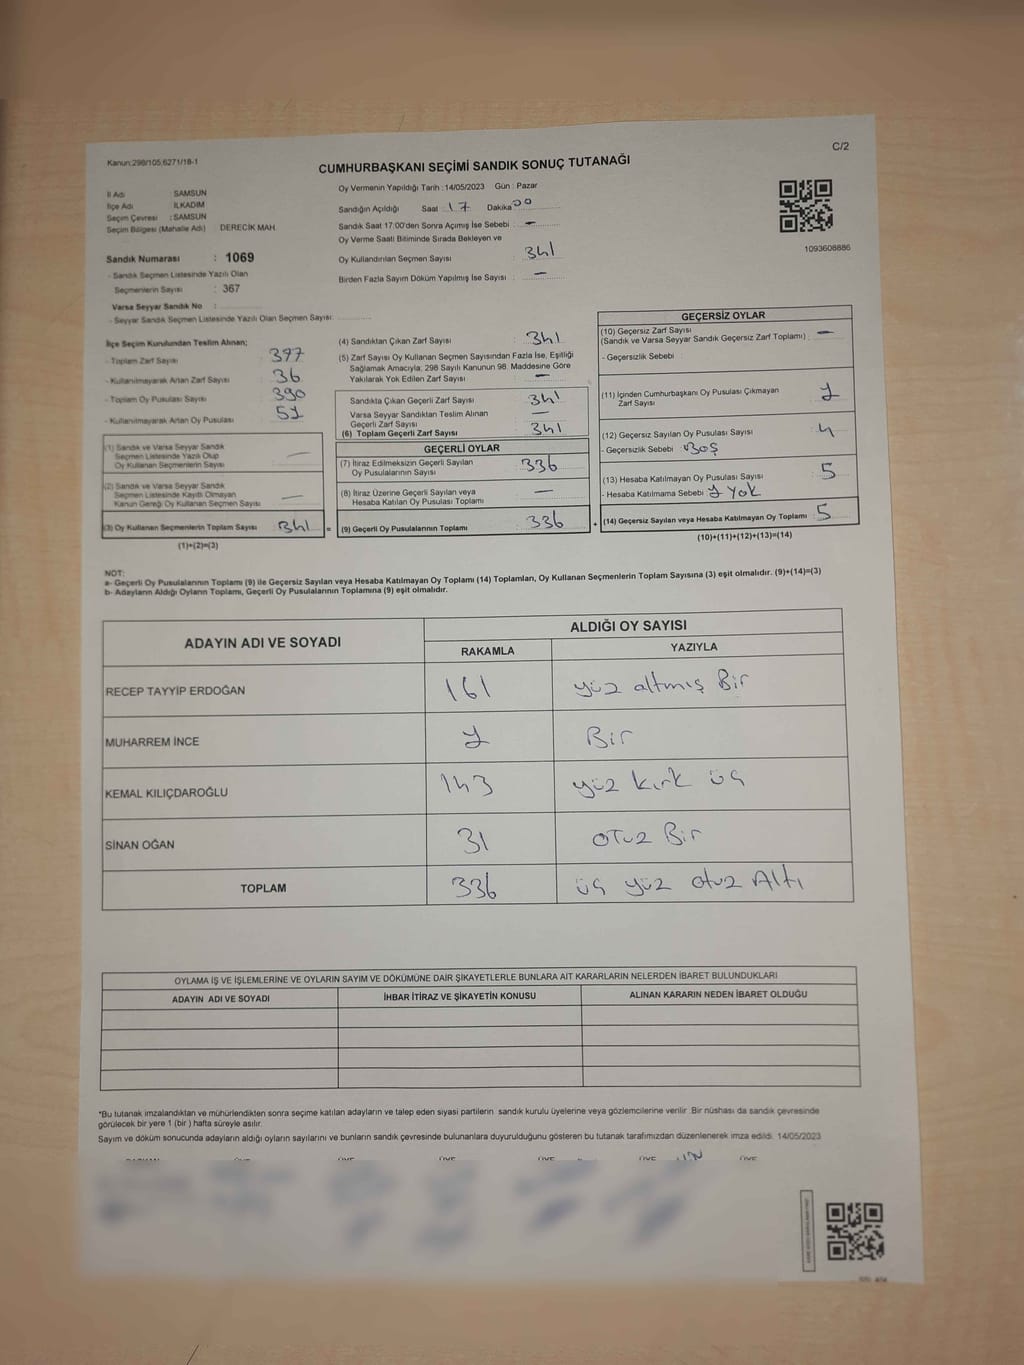 Kanun:298/105,6271/18-1
C/2
CUMHURBAŞKANI SEÇİMİ SANDIK SONUÇ TUTANAĞI
İl Adı SAMSUN
İlçe Adı İLKADIM
Seçim Çevresi : SAMSUN
Seçim Bölgesi (Mahalle Adı) DERECİK MAH.
Sandık Numarası : 1069
- Sandık Seçmen Listesinde Yazılı Olan
Seçmenlerin Sayısı : 367
Varsa Seyyar Sandık No :
- Seyyar Sandık Seçmen Listesinde Yazılı Olan Seçmen Sayısı:
Oy Vermenin Yapıldığı Tarih : 14/05/2023 Gün : Pazar
Sandığın Açıldığı Saat 17 Dakika 00
Sandık Saat 17:00'den Sonra Açımış İse Sebebi : -
Oy Verme Saati Bitiminde Sırada Bekleyen ve
Oy Kullandırılan Seçmen Sayısı : 341
Birden Fazla Sayım Döküm Yapılmış İse Sayısı : -
1093608886
İlçe Seçim Kurulundan Teslim Alınan;
- Toplam Zarf Sayısı : 377
- Kullanılmayarak Artan Zarf Sayısı : 36
- Toplam Oy Pusulası Sayısı : 390
- Kullanılmayarak Artan Oy Pusulası : 51
(1) Sandık ve Varsa Seyyar Sandık
Seçmen Listesinde Yazılı Olup
Oy Kullanan Seçmenlerin Sayısı -
(2) Sandık ve Varsa Seyyar Sandık
Seçmen Listesinde Kayıtlı Olmayan
Kanun Gereği Oy Kullanan Seçmen Sayısı -
(3) Oy Kullanan Seçmenlerin Toplam Sayısı 341 =
(1)+(2)=(3)
(4) Sandıktan Çıkan Zarf Sayısı : 341
(5) Zarf Sayısı Oy Kullanan Seçmen Sayısından Fazla İse, Eşitliği
Sağlamak Amacıyla; 298 Sayılı Kanunun 98. Maddesine Göre
Yakılarak Yok Edilen Zarf Sayısı : -
Sandıkta Çıkan Geçerli Zarf Sayısı : 341
Varsa Seyyar Sandıktan Teslim Alınan
Geçerli Zarf Sayısı -
(6) Toplam Geçerli Zarf Sayısı : 341
GEÇERLİ OYLAR
(7) İtiraz Edilmeksizin Geçerli Sayılan
Oy Pusulalarının Sayısı : 336
(8) İtiraz Üzerine Geçerli Sayılan veya
Hesaba Katılan Oy Pusulası Toplamı : -
(9) Geçerli Oy Pusulalarının Toplamı 336 +
GEÇERSİZ OYLAR
(10) Geçersiz Zarf Sayısı
(Sandık ve Varsa Seyyar Sandık Geçersiz Zarf Toplamı) : -
- Geçersizlik Sebebi :
(11) İçinden Cumhurbaşkanı Oy Pusulası Çıkmayan
Zarf Sayısı 1
(12) Geçersiz Sayılan Oy Pusulası Sayısı : 4
- Geçersizlik Sebebi : BOŞ
(13) Hesaba Katılmayan Oy Pusulası Sayısı : 5
- Hesaba Katılmama Sebebi 1 yok
(14) Geçersiz Sayılan veya Hesaba Katılmayan Oy Toplamı : 5
(10)+(11)+(12)+(13)=(14)
NOT:
a- Geçerli Oy Pusulalarının Toplamı (9) ile Geçersiz Sayılan veya Hesaba Katılmayan Oy Toplamı (14) Toplamları, Oy Kullanan Seçmenlerin Toplam Sayısına (3) eşit olmalıdır. (9)+(14)=(3)
b- Adayların Aldığı Oyların Toplamı, Geçerli Oy Pusulalarının Toplamına (9) eşit olmalıdır.
ADAYIN ADI VE SOYADI
ALDIĞI OY SAYISI
RAKAMLA YAZIYLA
RECEP TAYYİP ERDOĞAN 161 yüz altmış Bir
MUHARREM İNCE 1 Bir
KEMAL KILIÇDAROĞLU 143 yüz kırk üç
SİNAN OĞAN 31 otuz Bir
TOPLAM 336 üç yüz otuz Altı
OYLAMA İŞ VE İŞLEMLERİNE VE OYLARIN SAYIM VE DÖKÜMÜNE DAİR ŞİKAYETLERLE BUNLARA AİT KARARLARIN NELERDEN İBARET BULUNDUKLARI
ADAYIN ADI VE SOYADI İHBAR İTİRAZ VE ŞİKAYETİN KONUSU ALINAN KARARIN NEDEN İBARET OLDUĞU
*Bu tutanak imzalandıktan ve mühürlendikten sonra seçime katılan adayların ve talep eden siyasi partilerin sandık kurulu üyelerine veya gözlemcilerine verilir. Bir nüshası da sandık çevresinde
görülecek bir yere 1 (bir ) hafta süreyle asılır.
Sayım ve döküm sonucunda adayların aldığı oyların sayılarını ve bunların sandık çevresinde bulunanlara duyurulduğunu gösteren bu tutanak tarafımızdan düzenlenerek imza edildi. 14/05/2023
ÜYE ÜYE ÜYE ÜYE ÜYE ÜYE